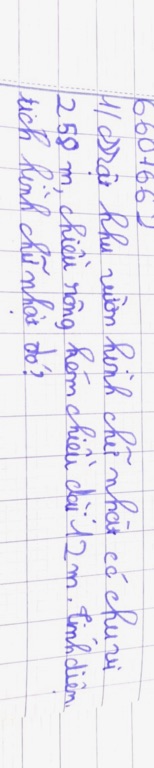 660166
4) Một khu vườn hình chữ nhật có chu vi
258 m, chiều rộng kém chiều dài 12 m. Tính diện
tích hình chữ nhật đó?